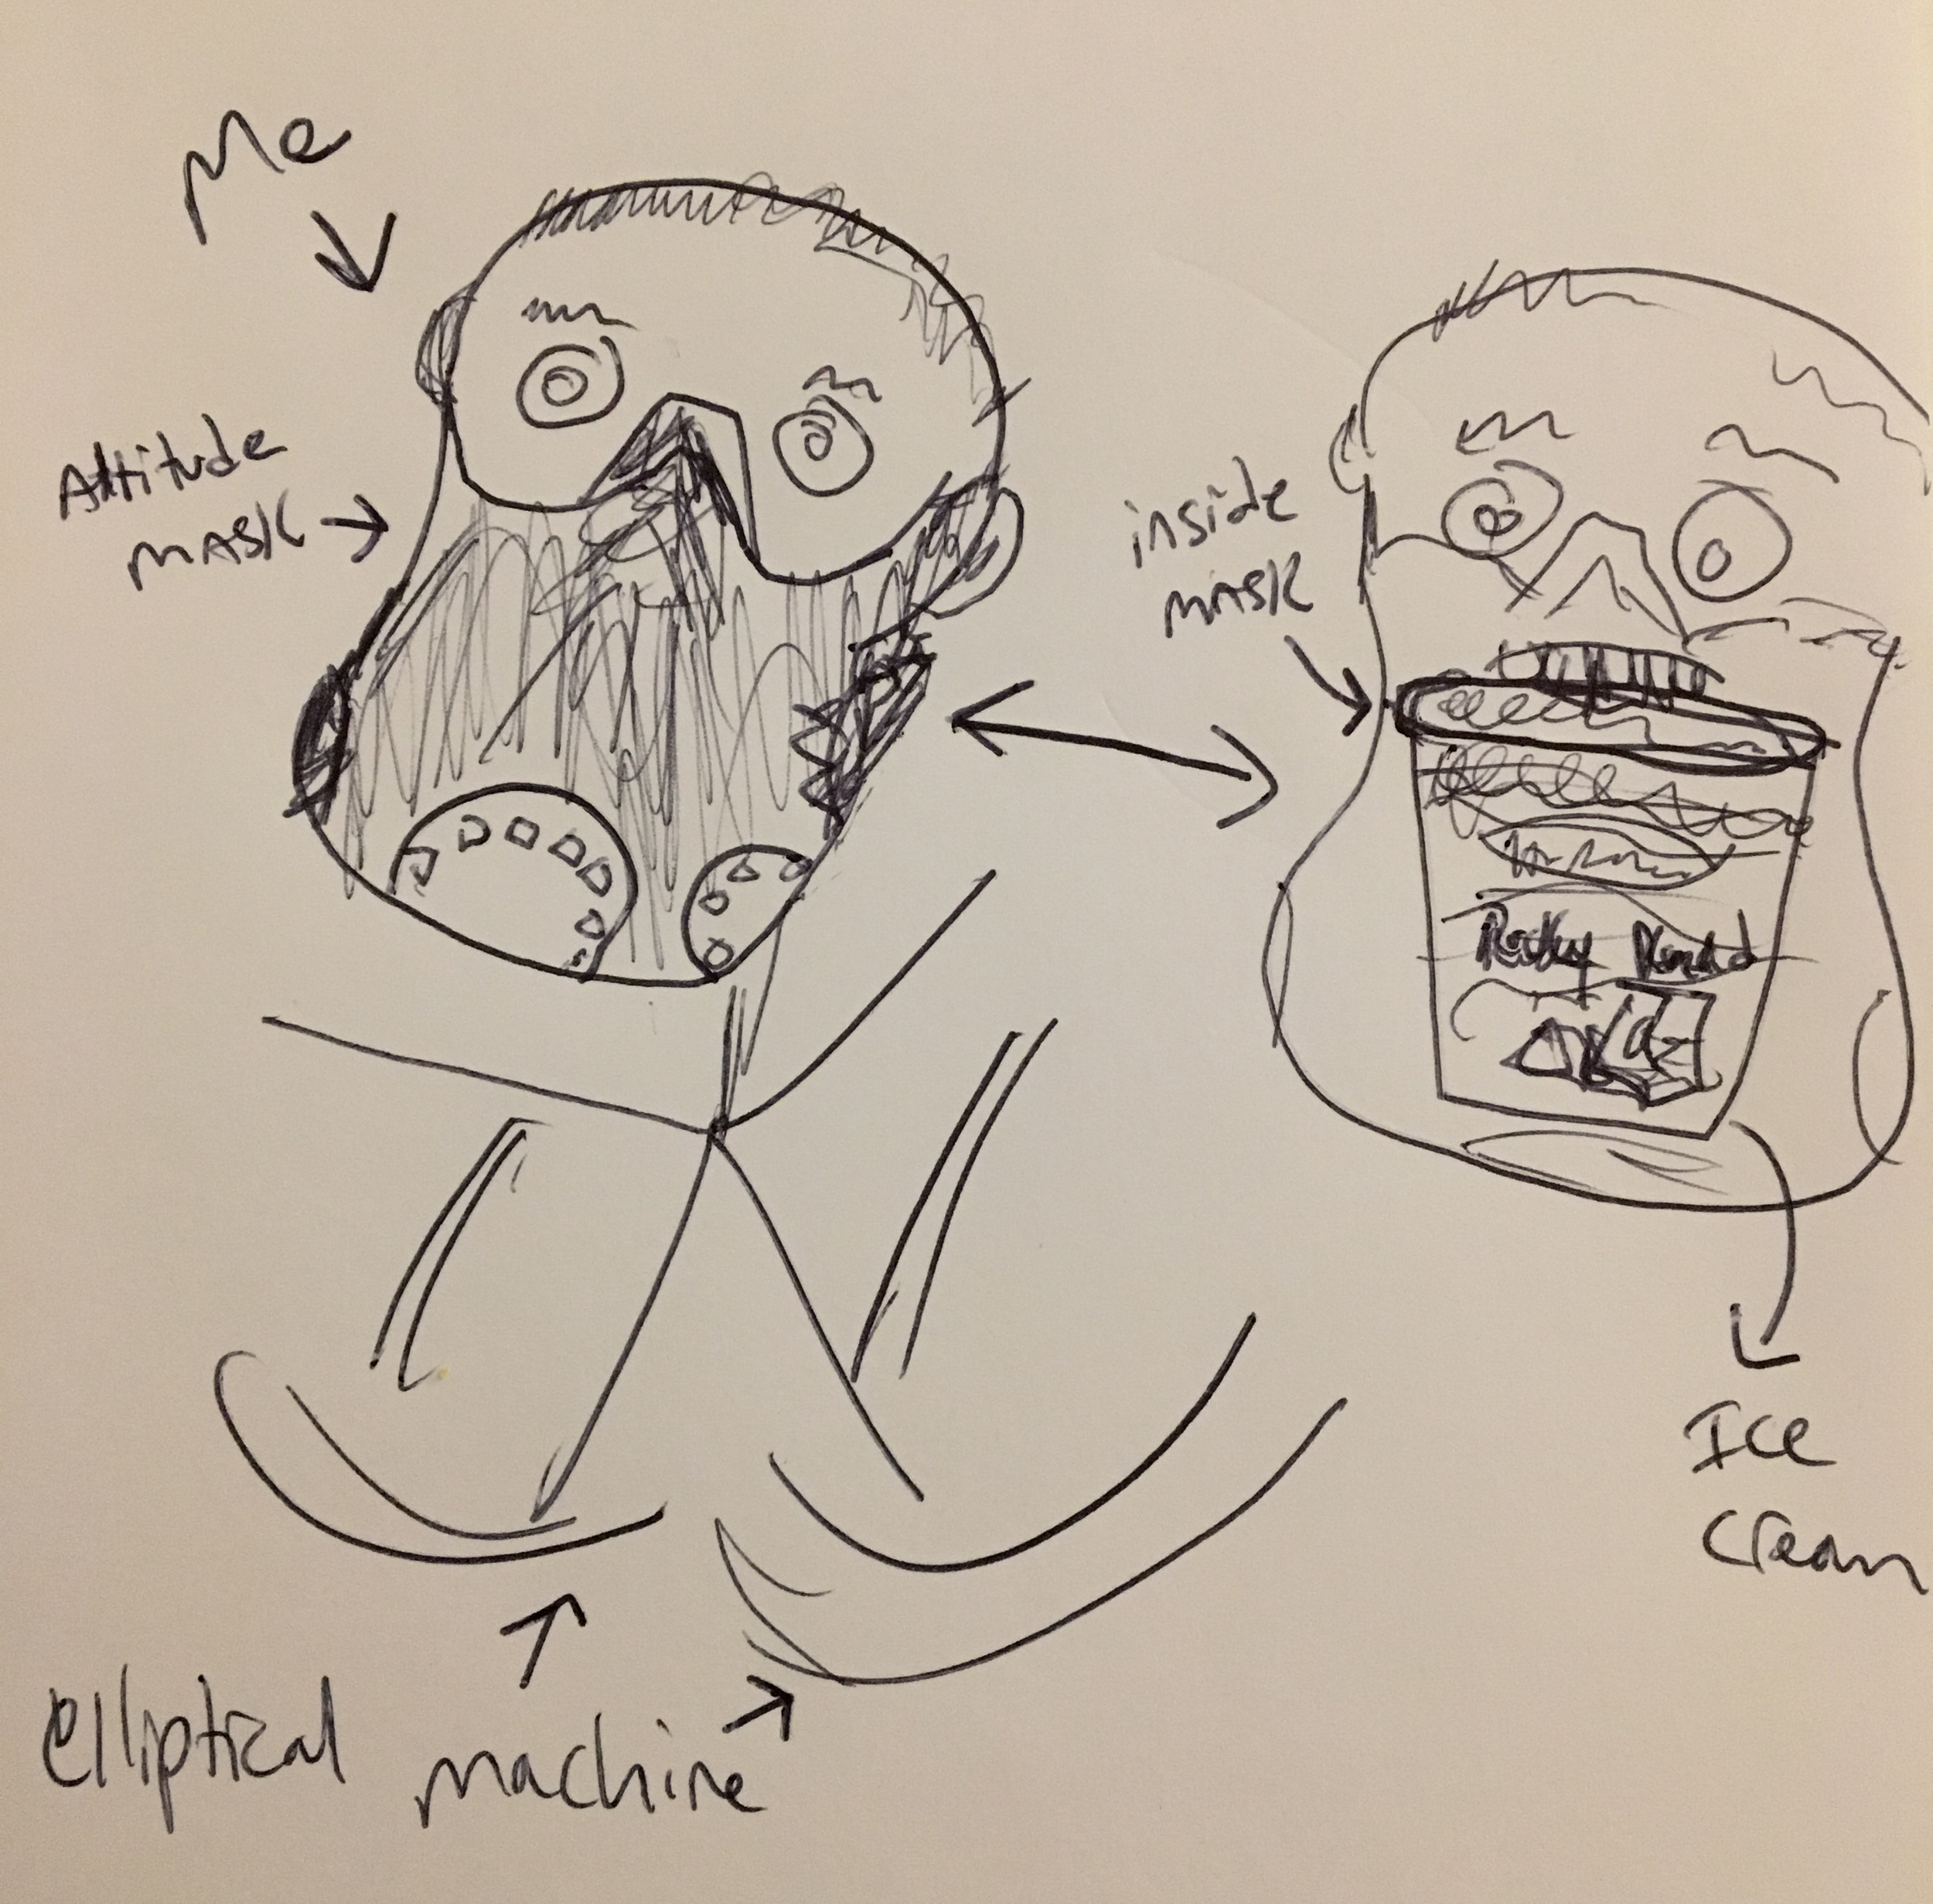 Me
Attitude
MASK
inside
MASK
Rocky Road
Ice
Cream
elliptical
machine